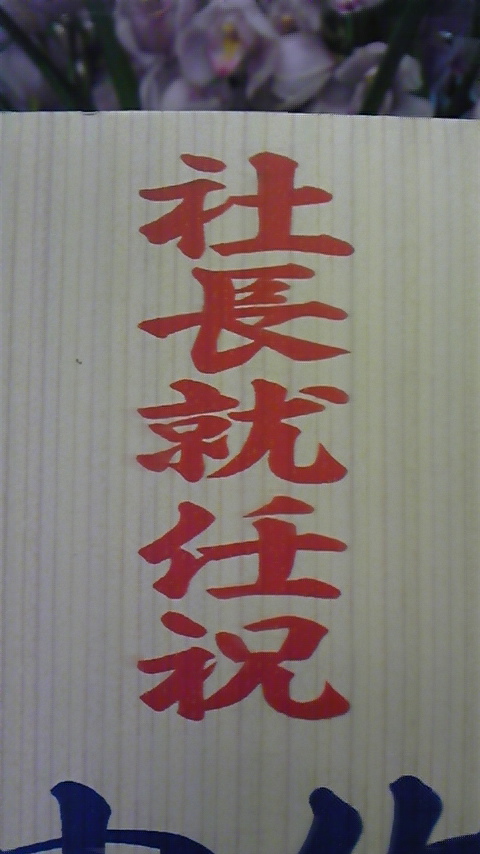 社長就任祝